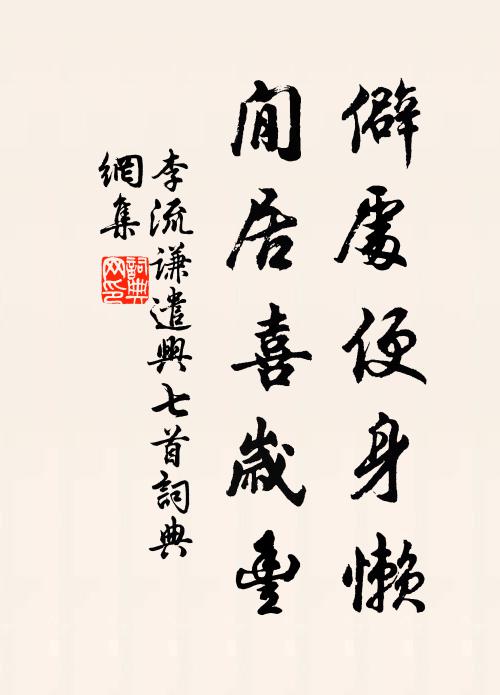 僻處便身懶
閒居喜歲豐
李流謙遣興七首詞典
網集
詞典
網印